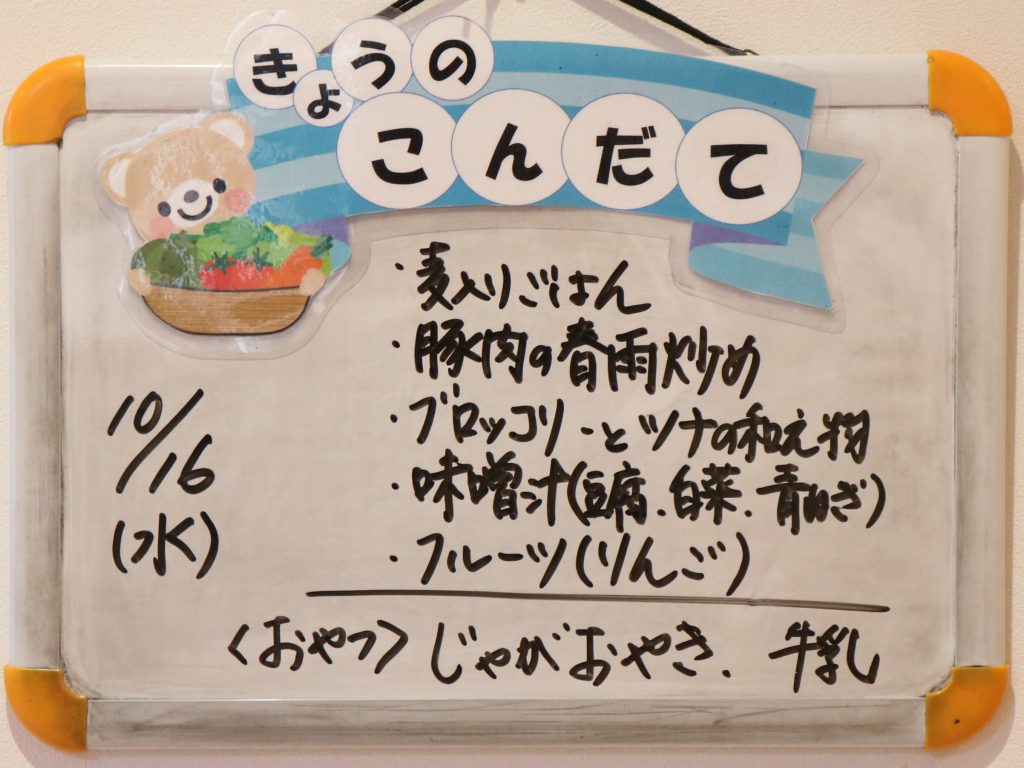 きょうの
こんだて
10/16
(水)
・麦入りごはん
・豚肉の春雨炒め
・ブロッコリーとツナの和え物
・味噌汁(豆腐.白菜.青ねぎ)
・フルーツ(りんご)
<おやつ>じゃがおやき. 牛乳